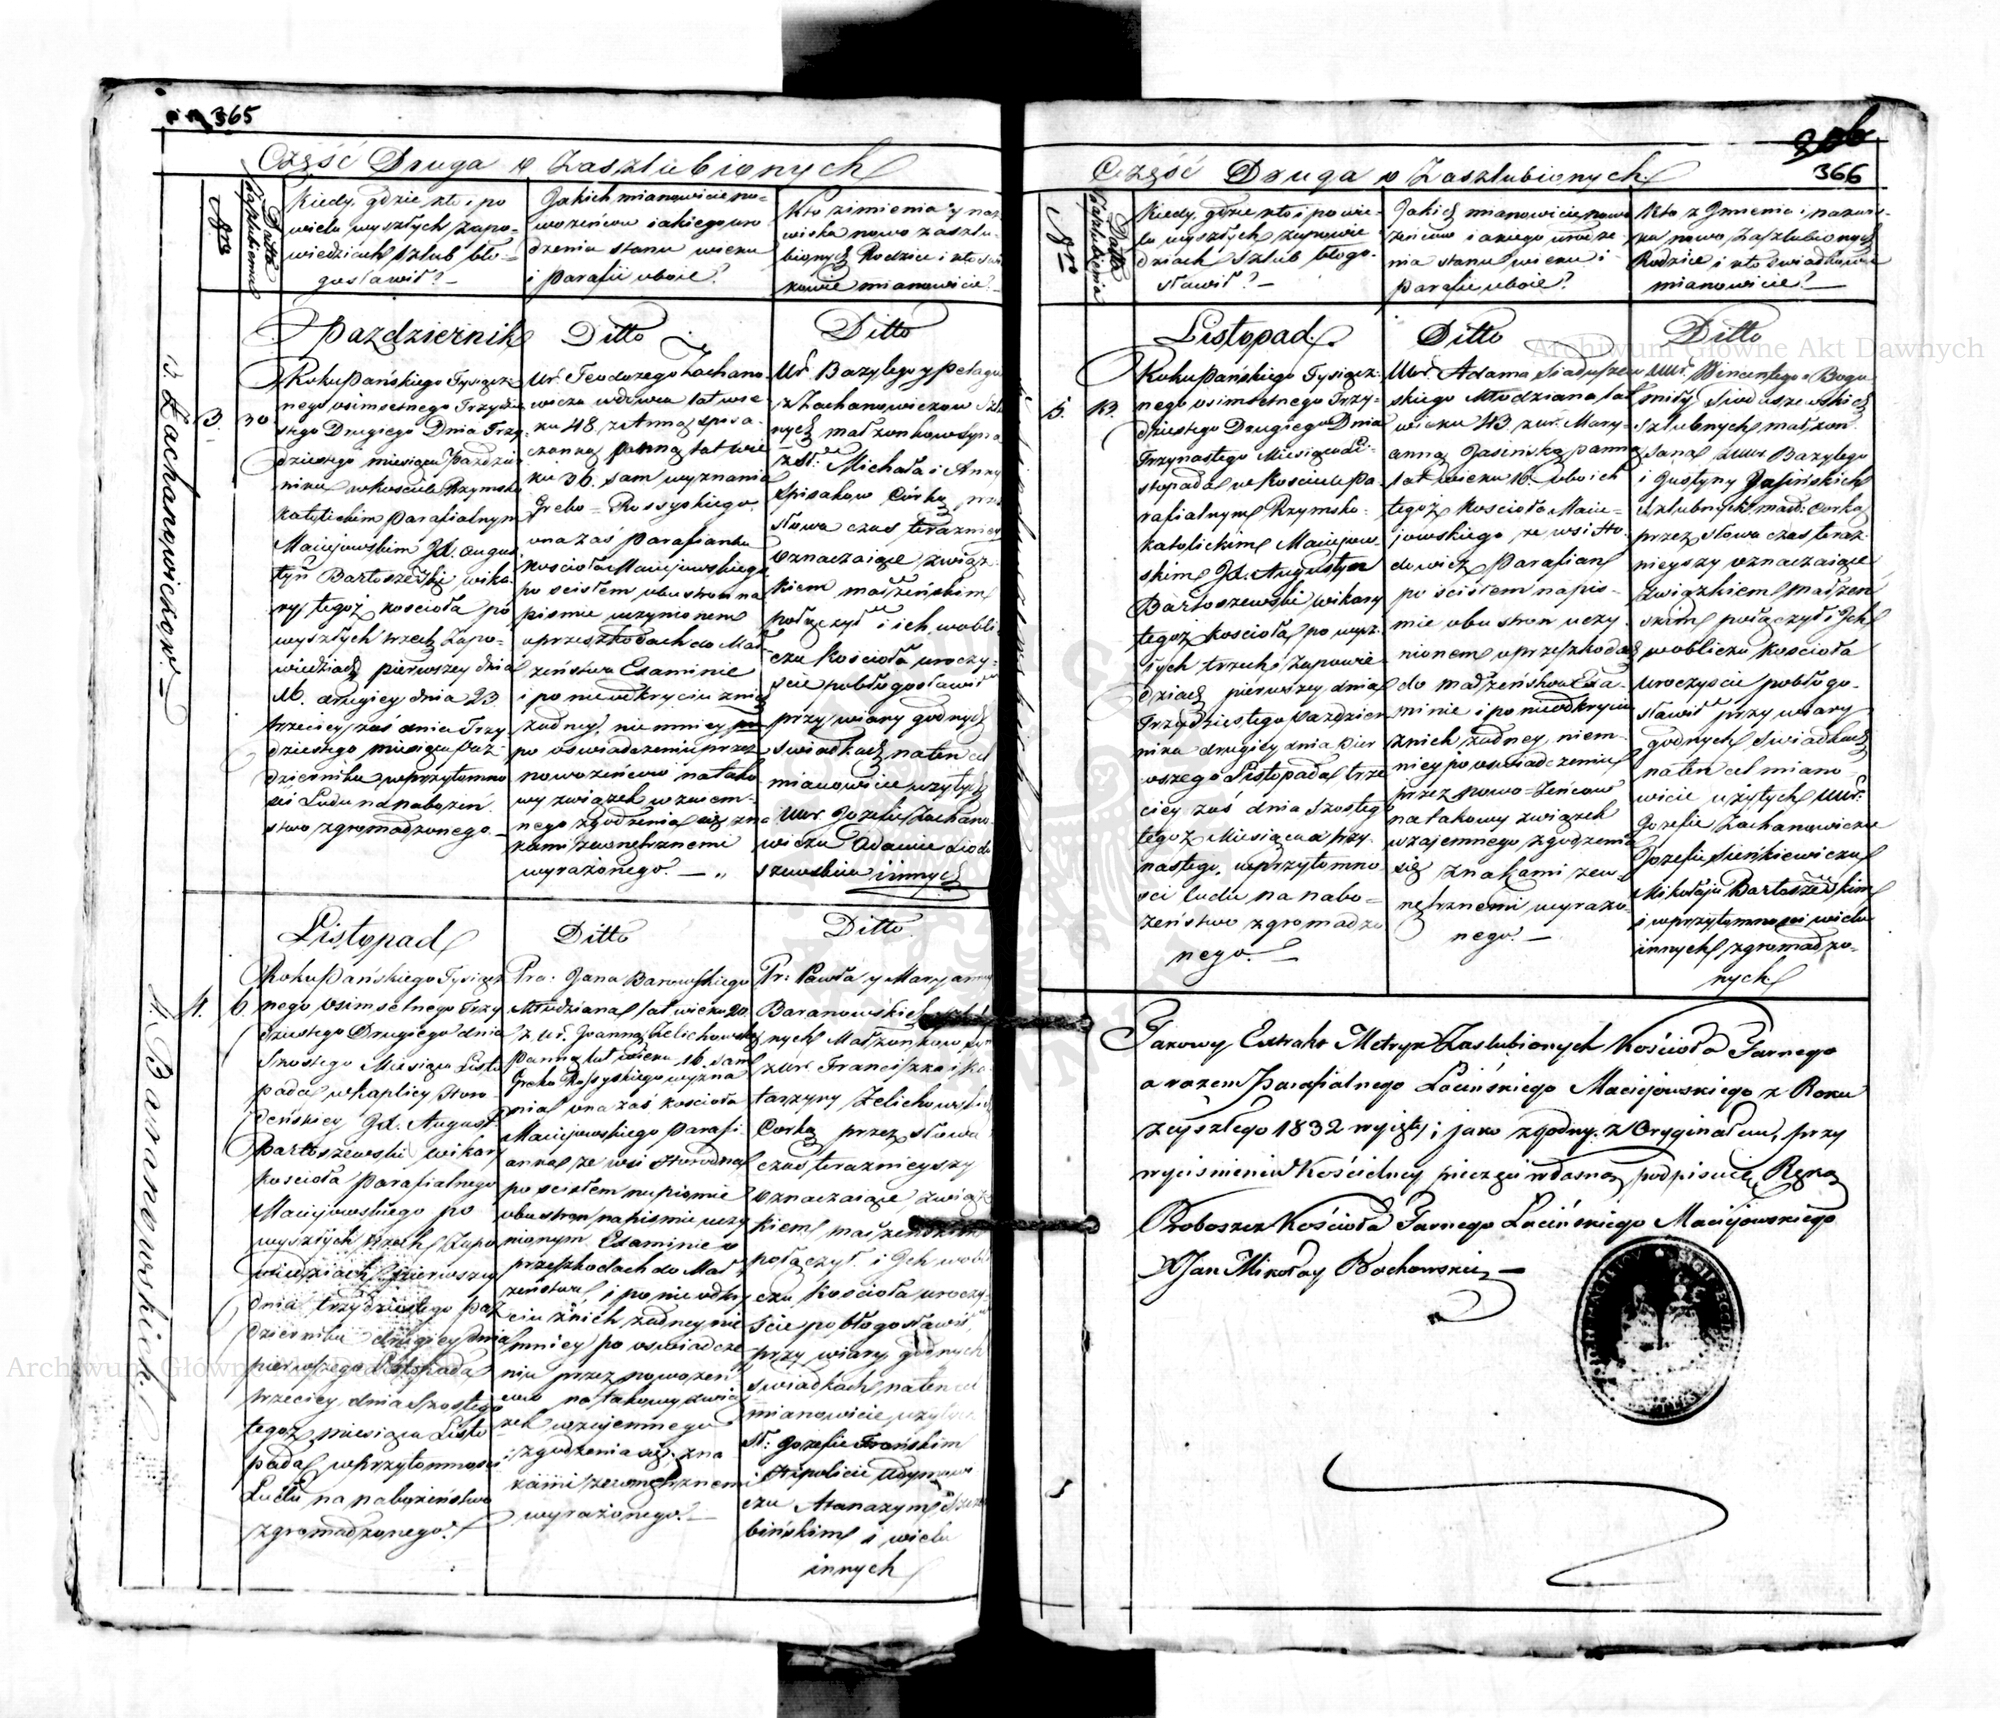 365
Część Druga o Zaszlubionych
Nro
Datta Zaszlubienia
Kiedy, gdzie, kto i po
wielu wyszłych zapo-
wiedziach szlub bło-
gosławił?
Jakich mianowicie no-
wożeńców i akiego uro
dzenia stanu wieku
i Parafii oboie?
Kto z imienia y naz
wiska nowo zaszlu-
bionych Rodzice i kto świ
kowie mianowicie?
3. Zachanowiczow.
3.
30
Pazdziernik
Roku Pańskiego Tysiącz-
nego osimsetnego Trzydzie
stego Drugiego Dnia Trzy
dziestego miesiąca Pazdzier
nika w Kosciele Rzymsko
katolickim Parafialnym
Maciejowskim Jd. August
tyn Bartoszewski wika-
ry tegoż kosciola po
wyszłych trzech Zapo-
wiedziach pierwszey dnia
16. drugiey dnia 23.
trzeciey zaś dnia Trzy
dziestego miesiąca Paz-
dziernika w przytomno
ści Ludu na nabożeń
stwo zgromadzonego.
Ditto
Ur. Teodozego Zachano-
wicza wdowca lat wie-
ku 48, z Anną Spisa-
czanką panną lat wie
ku 36. sam wyznania
Greko-Rossyiskiego.
ona zaś parafianka
kosciola Maciejowskiego
po scisłem obustronna
pismie uczynionem
o przeszkodach do Mał-
żeństwa Examinie
i po nieodkryciu z nich
żadney, nie mniey
po oświadczeniu przez
nowożeńców na tako
wy związek wzaiem-
nego zgodzenia się zna
kami zewnętrznemi
wyrażonego.
Ditto
Ur. Bazylego y Pelagii
z Zachanowiczow Szlu
nych małzonkow Syna
z St: Michała i Anny
Spisakow Córką, prze
słowa czas teraznieys
oznaczaiące związ-
kiem małżeńskim
połączył i ich w obli
czu Kościoła uroczy-
ście pobłogosławił
przy wiary godnych
świadkach na ten cel
mianowicie użytych
Uur. Jozefie Zachano-
wiczu Adamie Siodu
szewskim i innych
4. Baranowskich.
4.
6.
Listopad
Roku Pańskiego Tysiącz
nego Osimsetnego Trzy
dziestego Drugiego dnia
Szostego Miesiąca Listo
pada w Kaplicy Horo-
denskiey Jd. August
Bartoszewski wikary
Kościoła Parafialnego
Maciejowskiego po
wyszłych trzech Zapo
wiedziach pierwszey
dnia trzydziestego Paz
dziernika drugiey dnia
pierwszego Listopada
trzeciey dnia Szostego
tegoz miesiąca Listo
pada w przytomnosci
Ludu na nabożeństwo
zgromadzonego.
Ditto
Pra: Jana Barowskiego
Młodziana lat wieku 20.
z Ur. Joanną Zelichowską
Panną lat wieku 16. sam
Greko Rossyiskiego wyzna
nia ona zaś kosciola
Maciejowskiego Parafi-
anka ze wsi Horodna
po scisłem na pismie
obustron na pismie uczy
nionym Examinie o
przeszkodach do Mał
żeństwa, i po nieodkry
ciu z nich żadney nie
mniey po oswiadcze
niu przez nowożeń
cow na takowy zwią
zek wzajemnego
zgodzenia się zna
kami zewnętrznemi
wyrażonego.
Ditto
Pr: Pawła y Maryanny
Baranowskich szlub
nych Małzonkow syn
z Uur. Franciszka i Ka
tarzyny Zelichowskich
Corką przez słowa
czas teraznieyszy
oznaczaiące związ
kiem małżeńskim
połączył i Ich w obli
czu Kościoła uroczy-
ście pobłogosławił
przy wiary godnych
świadkach na ten cel
mianowicie użytych
St: Jozefie Trońskim
Atanazym
bińskim i wielu
innych
366
Część Druga o Zaszlubionych.
Nro
Datta Zaszlubienia
Kiedy, gdzie, kto i po wie-
lu wyszłych zapowie
dziach Szlub błogo-
sławił?
Jakich mianowicie nowo
żeńców i akiego urodze
nia stanu wieku i
Parafii oboie?
Kto z Jmienia i nazwis-
ka nowo Zaszlubionych
Rodzice i kto świadkowie
mianowicie?
5.
13.
Listopad.
Roku Pańskiego Tysiącz-
nego osimsetnego Trzy-
dziestego Drugiego Dnia
Trzynastego Miesiąca Li-
stopada w Kosciele Pa-
rafialnym Rzymsko-
katolickim Maciejow-
skim Jd. Augustyn
Bartoszewski wikary
tegoż kosciola po wysz-
łych trzech Zapowie-
dziach pierwszey dnia
Trzydziestego Pazdzier
nika drugiey dnia Pier
wszego Listopada trze
ciey zaś dnia Szostego
tegoż Miesiąca a trzy-
nastego, w przytomno
ści ludu na nabo-
żeństwo zgromadzo
nego.
Ditto
Uur. Adama Siaduszew
skiego Młodziana lat
wieku 43 z ur. Mary-
anną Jasińską panną
lat wieku 16. oboich
tegoż Kościoła Macie-
jowskiego ze wsi Ho-
dowicz Parafian
po scisłem na pis-
mie obustron uczy-
nionem o przeszkodach
do małżeństwa Exa-
minie i po nieodkryciu
z nich żadney, niem-
niey po oswiadczeniu
przez Nowo-Żeńcow
na takowy związek
wzajemnego zgodzenia
się znakami zew-
nętrznemi wyrażo-
nego.
Ditto
Uur. Wincentego i Bogu
miły Siodaszewskich
Szlubnych małżon.
Syna z Uur Bazylego
i Justyny Jasińskich
Szlubnych małż: Corką
przez słowa czas teraz-
nieyszy oznaczaiące
Związkiem małżeń-
skim połączył i Ich
w obliczu Kościoła
Uroczyscie pobłogo-
sławił przy wiary
godnych Swiadkach
na ten cel miano
wicie użytych Uur.
Jozefie Zachanowiczu
Jozefie Sienkiewiczu
Mikołaju Bartoszewskim
i w przytomnosci wielu
innych zgromadzo-
nych
Takowy Extrakt Metryk Zaslubionych Kościoła Farnego
a razem Parafialnego Łacińskiego Maciejowskiego z Roku
zeyszłego 1832 wyięty; jako zgodny z Oryginałem, przy
wyciśnieniu Kościelney pieczęci własną podpisuię Ręką
Proboszcz Kościoła Farnego Łacińskiego Maciejowskiego
X Jan Mikołay Bochowski
5
Archiwum Główne Akt Dawnych
Archiwum Główne Akt Dawnych